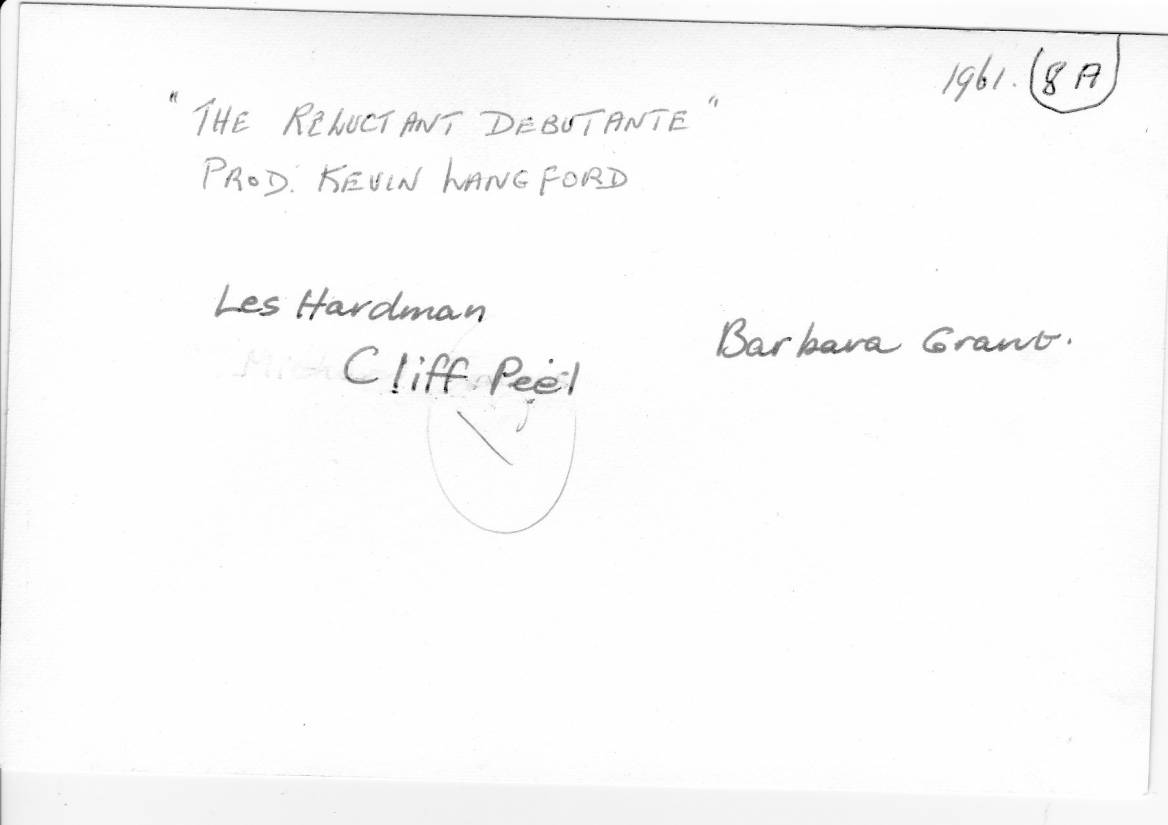 1961. 8A
"THE RELUCTANT DEBUTANTE"
PROD. KEVIN LANGFORD
Les Hardman
Barbara Grant.
Cliff Peel